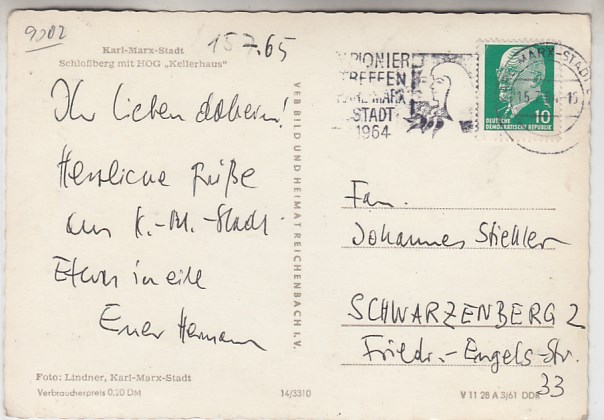 9002
Karl-Marx-Stadt
Schloßberg mit HOG „Kellerhaus"
15 7.65
Ihr lieben daheim!
Herzliche Grüße
aus K.-M.-Stadt.
Etwas in eile
Euer Hermann
Foto: Lindner, Karl-Marx-Stadt
Verbraucherpreis 0,20 DM
14/3310
VEB BILD UND HEIMAT REICHENBACH I. V.
PIONIER
TREFFEN
KARL MARX
STADT
1964
MARX-STADT
15
DEUTSCHE
DEMOKRATISCHE REPUBLIK
10
Fam.
Johannes Stiehler
SCHWARZENBERG 2
Friedr.-Engels-Str.
33
V 11 28 A 3/61 DDR